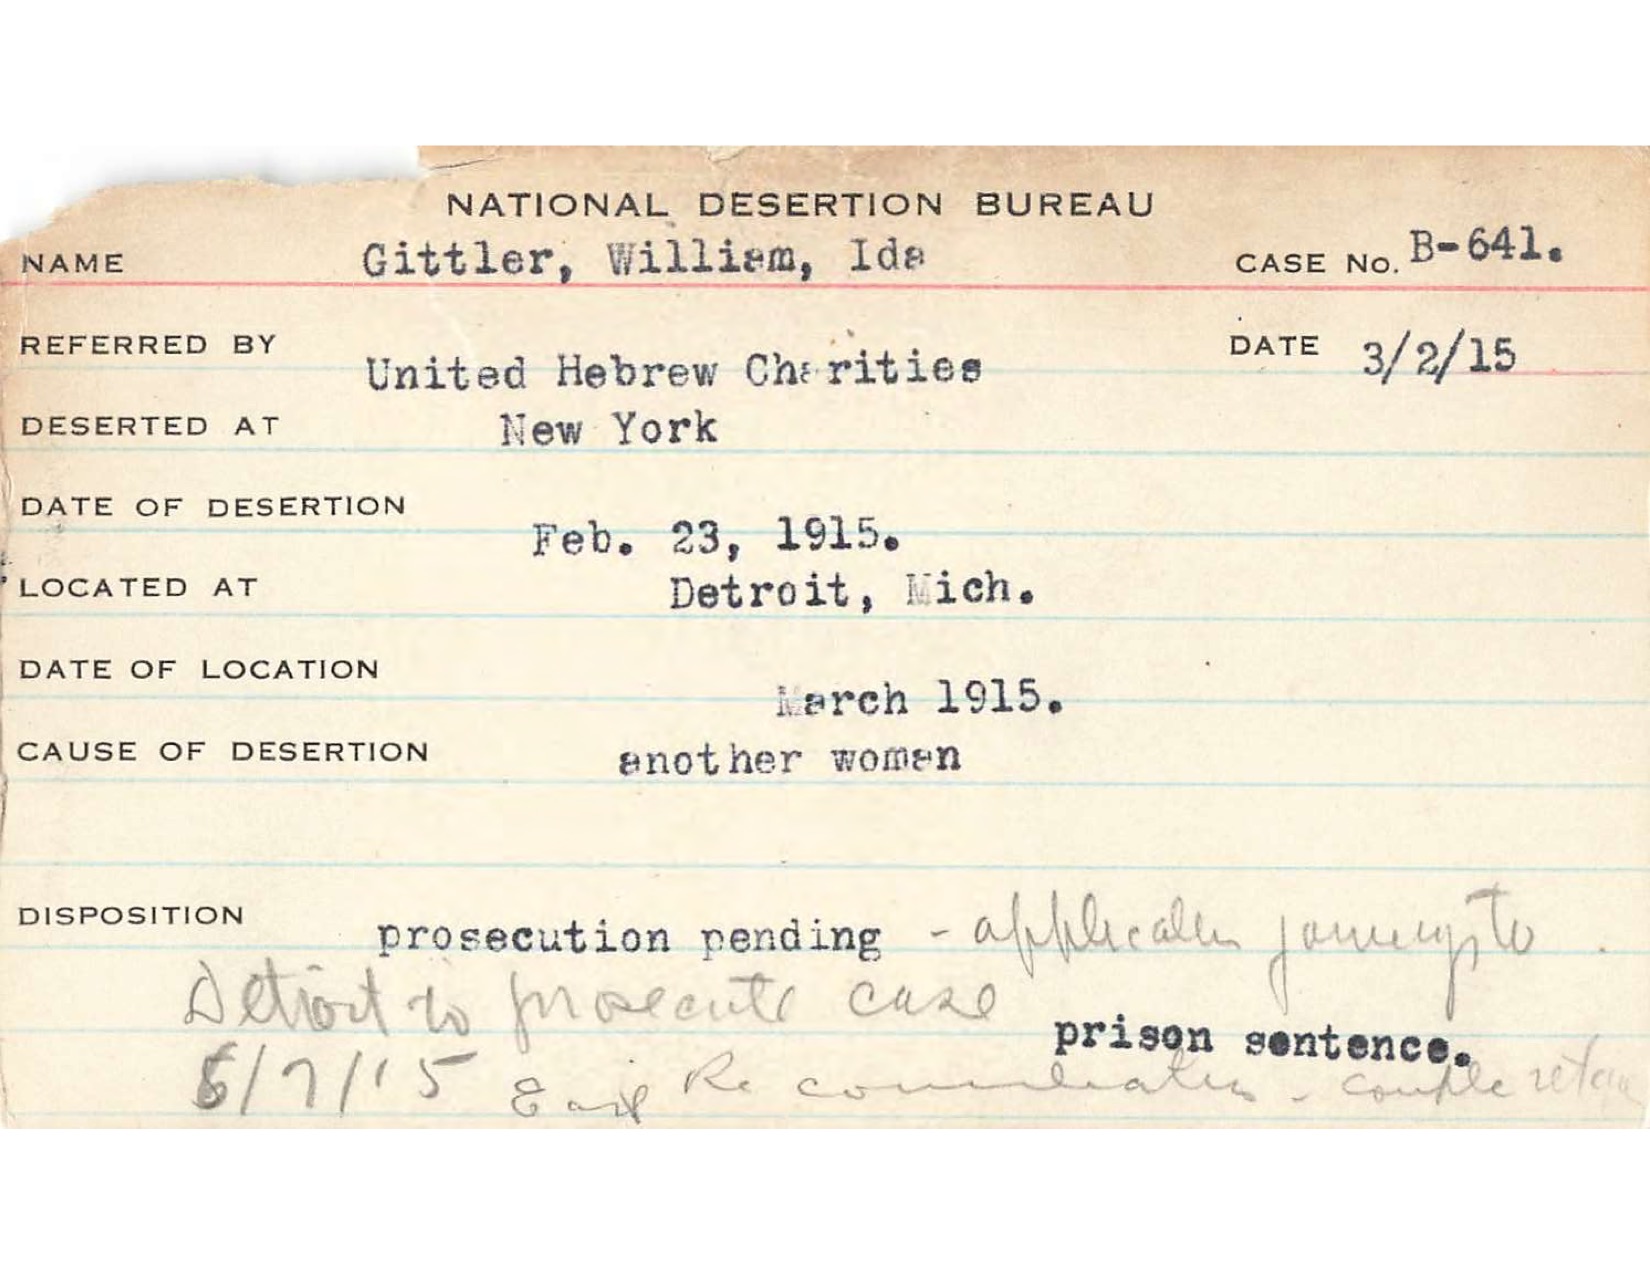 NATIONAL DESERTION BUREAU
NAME Gittler, William, Ida CASE No. B-641.
REFERRED BY United Hebrew Charities DATE 3/2/15
DESERTED AT New York
DATE OF DESERTION Feb. 23, 1915.
LOCATED AT Detroit, Mich.
DATE OF LOCATION March 1915.
CAUSE OF DESERTION another woman
DISPOSITION prosecution pending - to
Detroit to prosecute case
prison sentence.
/7/15 Reconciliation - couple